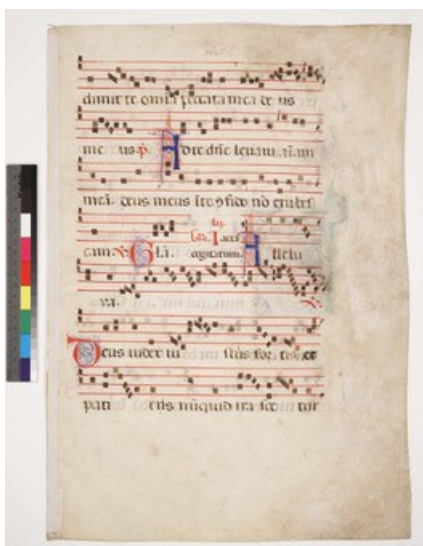 dimitte omia peccata mea de us
me us p̄s A d te dñe levavi aīam
meā deus meus ī te ɔfido nō erubes
cam ℣ Glā. Gr̄ Iacta cogitatum A llelu
ya. ℣
Deus iudex iu stus for tis et
pati ens nūquid ira sce tur